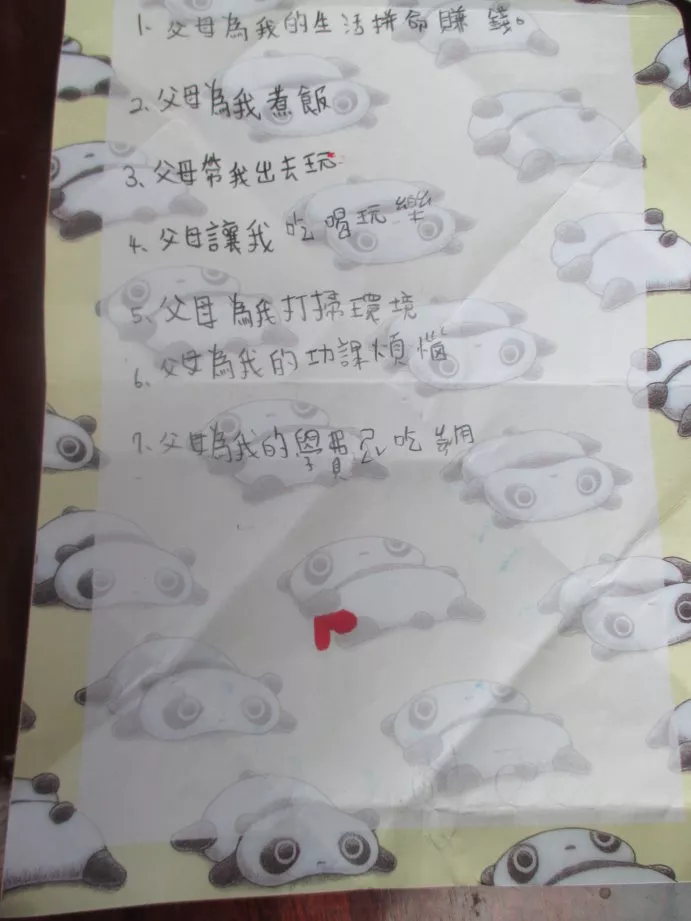 1. 父母為我的生活拼命賺錢。
2. 父母為我煮飯
3、父母帶我出去玩
4、父母讓我吃喝玩樂
5、父母為我打掃環境
6、父母為我的功課煩惱
7、父母為我的學費忍吃